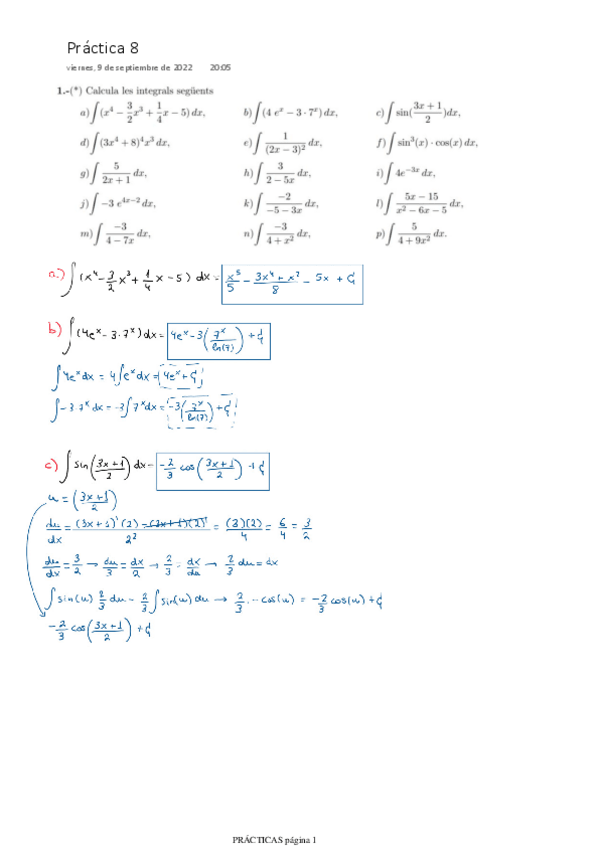 Práctica 8
viernes, 9 de septiembre de 2022 20:05
1.-(*) Calcula les integrals següents
a) ∫(x⁴ − 3/2 x³ + 1/4 x − 5) dx, b) ∫(4 eˣ − 3 · 7ˣ) dx, c) ∫ sin((3x + 1)/2) dx,
d) ∫(3x⁴ + 8)⁴ x³ dx, e) ∫ 1/(2x − 3)² dx, f) ∫ sin³(x) · cos(x) dx,
g) ∫ 5/(2x + 1) dx, h) ∫ 3/(2 − 5x) dx, i) ∫ 4e⁻³ˣ dx,
j) ∫ −3 e⁴ˣ⁻² dx, k) ∫ −2/(−5 − 3x) dx, l) ∫ (5x − 15)/(x² − 6x − 5) dx,
m) ∫ −3/(4 − 7x) dx, n) ∫ −3/(4 + x²) dx, p) ∫ 5/(4 + 9x²) dx.
a.) ∫ (x⁴ − 3/2 x³ + 1/4 x − 5) dx = x⁵/5 − (3x⁴ + x²)/8 − 5x + C
b) ∫ (4eˣ − 3·7ˣ) dx = 4eˣ − 3(7ˣ/ln(7)) + C
∫ 4eˣ dx = 4∫ eˣ dx = 4eˣ + C
∫ −3·7ˣ dx = −3∫ 7ˣ dx = −3(7ˣ/ln(7)) + C
c) ∫ sin((3x+1)/2) dx = −2/3 cos((3x+1)/2) + C
u = ((3x+1)/2)
du/dx = ((3x+1)'(2) − (3x+1)(2)')/2² = (3)(2)/4 = 6/4 = 3/2
du/dx = 3/2 → du/3 = dx/2 → 2/3 = dx/du → 2/3 du = dx
∫ sin(u) 2/3 du = 2/3 ∫ sin(u) du → 2/3 · −cos(u) = −2/3 cos(u) + C
−2/3 cos((3x+1)/2) + C
PRÁCTICAS página 1